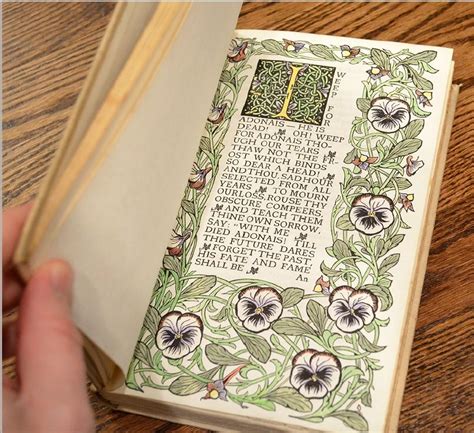 I WEEP FOR
ADONAIS — HE IS
DEAD! OH! WEEP
FOR ADONAIS THO-
UGH OUR TEARS
THAW NOT THE FR-
OST WHICH BINDS
SO DEAR A HEAD!
AND THOU, SAD HOUR
SELECTED FROM ALL
YEARS TO MOURN
OUR LOSS, ROUSE THY
OBSCURE COMPEERS,
AND TEACH THEM
THINE OWN SORROW,
SAY: "WITH ME
DIED ADONAIS! TILL
THE FUTURE DARES
FORGET THE PAST
HIS FATE AND FAME
SHALL BE
An